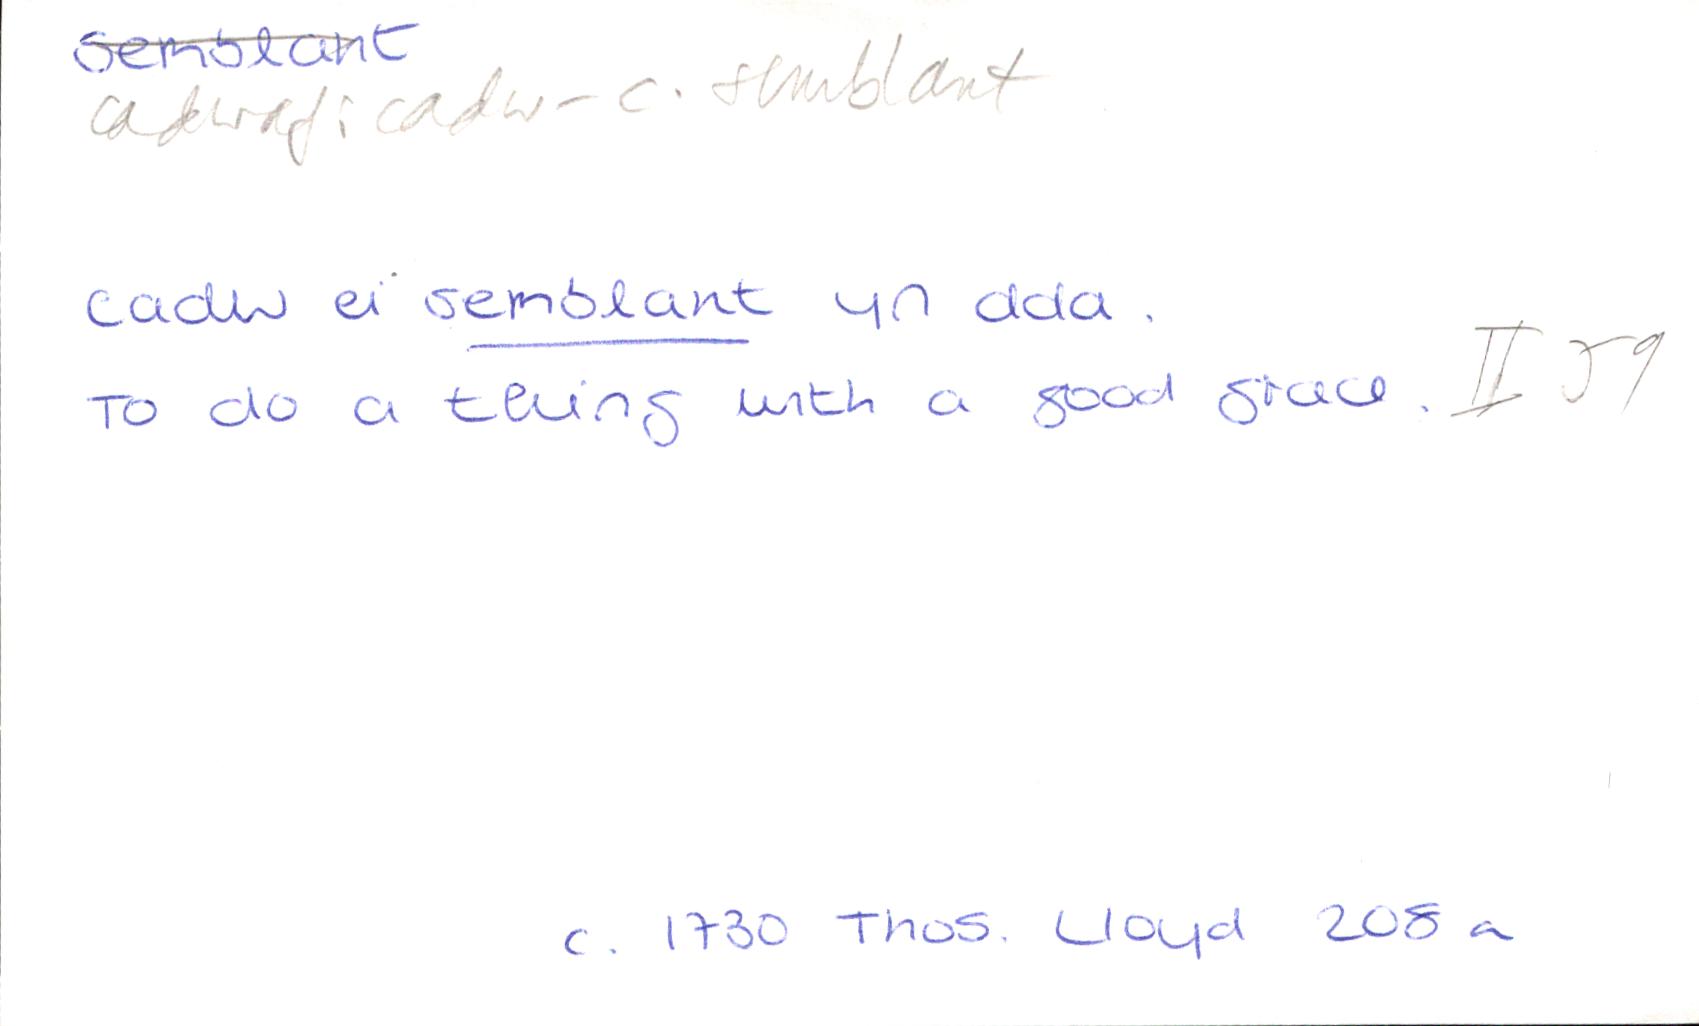 semblant
cadwaf: cadw – c. semblant
cadw ei semblant yn dda.
To do a thing with a good grace. II 59
c. 1730 Thos. Lloyd 208 a